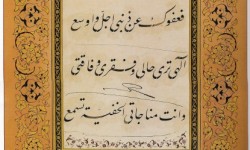 فعفوك عن ذنبي اجل واوسع
الهي ترى حالي وفقري وفاقتي
وانت مناجاتي الخفية تسمع